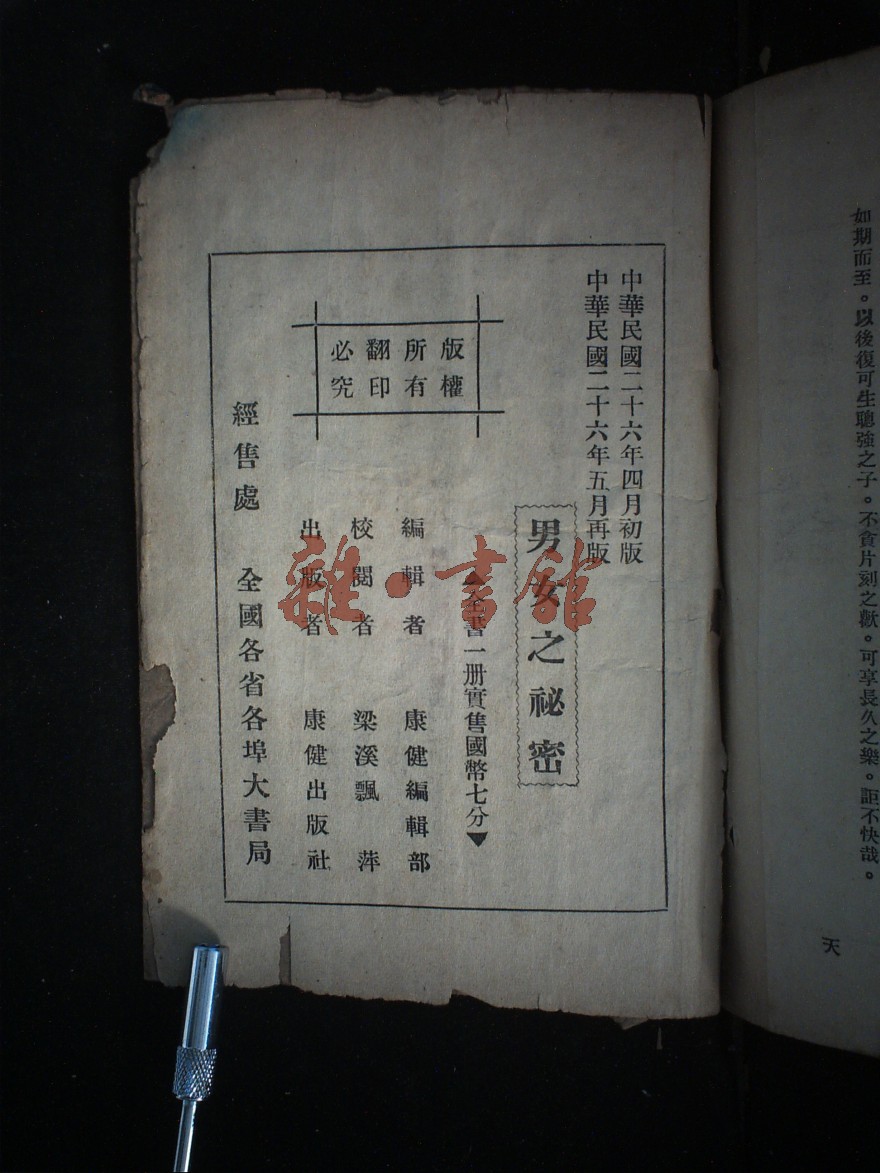 如期而至。以後復可生聰強之子。不貪片刻之歡。可享長久之樂。詎不快哉。
天
中華民國二十六年四月初版
中華民國二十六年五月再版
男女之祕密
▲全書一册實售國幣七分▼
版權
所有
翻印
必究
編輯者 康健編輯部
校閱者 梁溪飄萍
出版者 康健出版社
經售處 全國各省各埠大書局
雜·書館